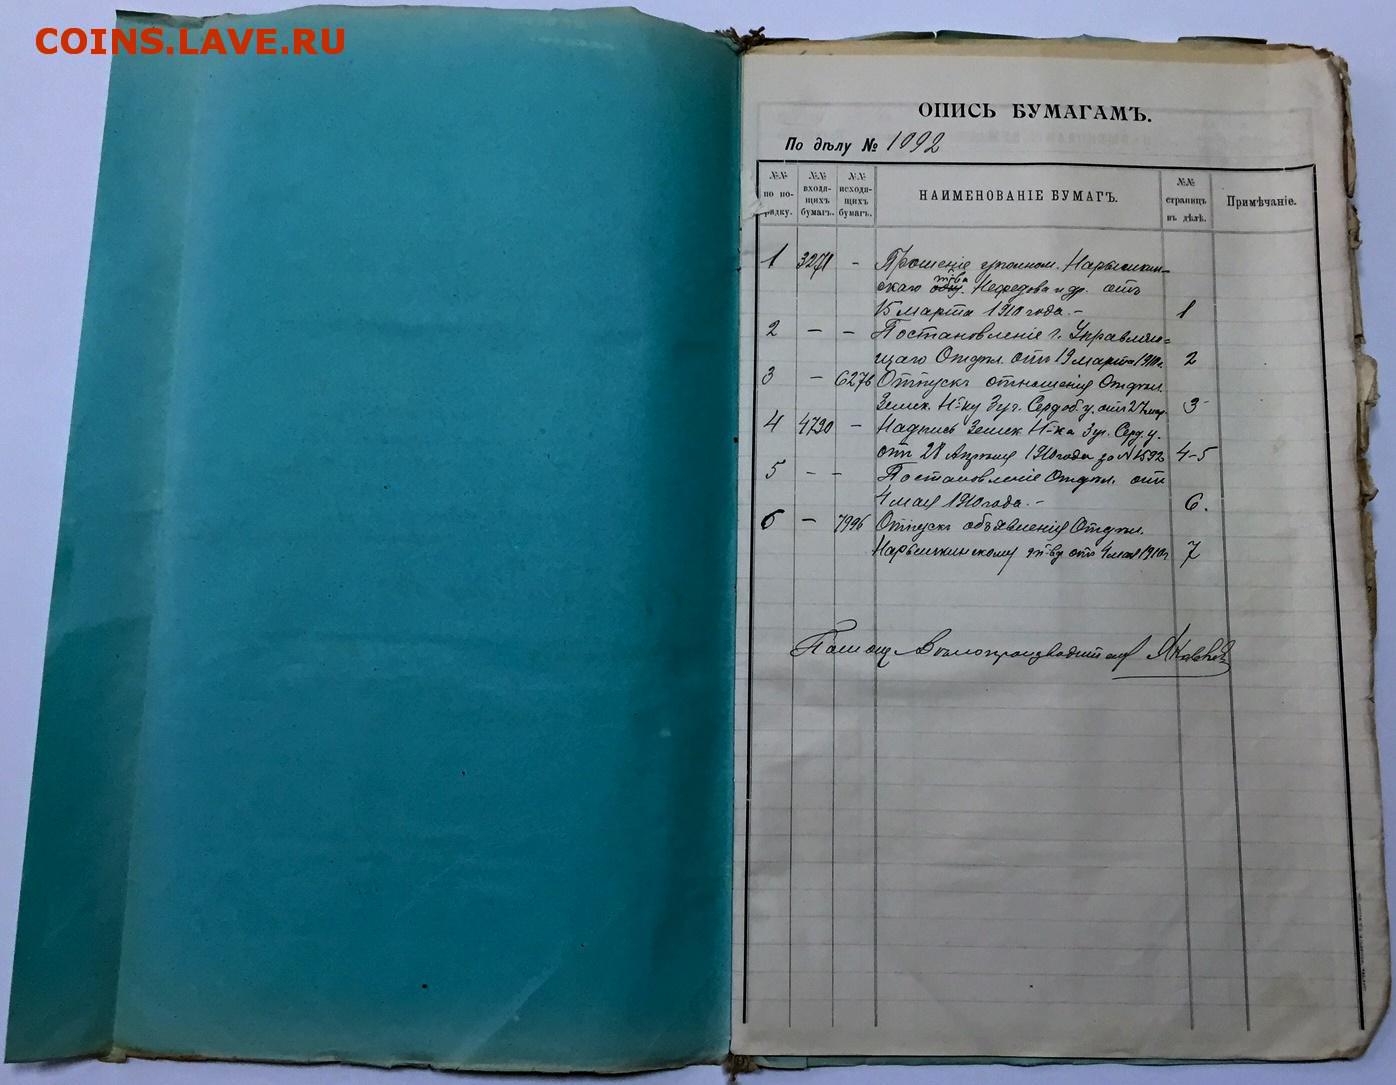 COINS.LAVE.RU
ОПИСЬ БУМАГАМЪ.
По дѣлу № 1092
№№ по по-рядку.
№№ входя-щихъ бумагъ.
№№ исходя-щихъ бумагъ.
НАИМЕНОВАНІЕ БУМАГЪ.
№№ страницъ въ дѣлѣ.
Примѣчаніе.
1 3271 - Прошеніе уполном. Нарышкин-
скаго т-ва Нефедова и др. отъ
15 марта 1910 года. - 1
2 - - Постановленіе г. Управляю-
щаго Отдѣл. отъ 19 марта 1910 г. 2
3 - 6276 Отпускъ отношенія Отдѣл.
Земск. Н-ку 3 уч. Сердоб. у. отъ 27 мар. 3
4 4790 - Надпись Земск. Н-ка 3 уч. Серд. у.
отъ 28 Апрѣля 1910 года за № 1592 4-5
5 - - Постановленіе Отдѣл. отъ
4 мая 1910 года. - 6.
6 - 7996 Отпускъ объявленія Отдѣл.
Нарышкинскому т-ву отъ 4 мая 1910 г. 7
Помощ Дѣлопроизводителя